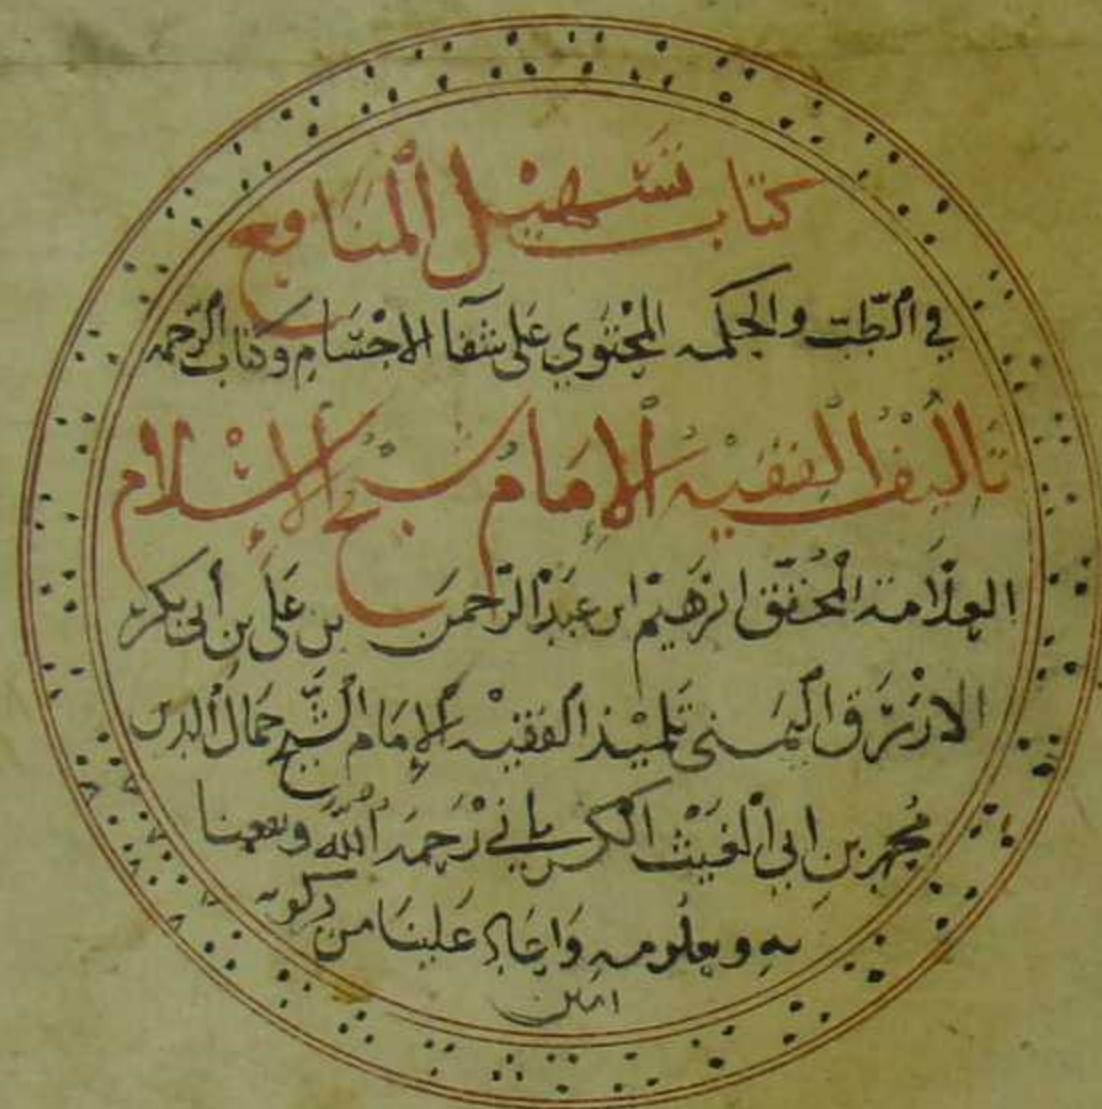 كتاب تسهيل المنافع
في الطب والحكمه المحتوي على شفا الاجسام وكتاب الرحمه
تاليف الفقيه الإمام شيخ الإسلام
العلامة المحقق ابرهيم ابن عبد الرحمن بن علي بن أبي بكر
الازرق اليمني تلميذ الفقيه الإمام الشيخ جمال الدين
محمد بن ابي الغيث الكمراني رحمه الله ونفعنا
به وبعلومه واعاد علينا من بركته
امين